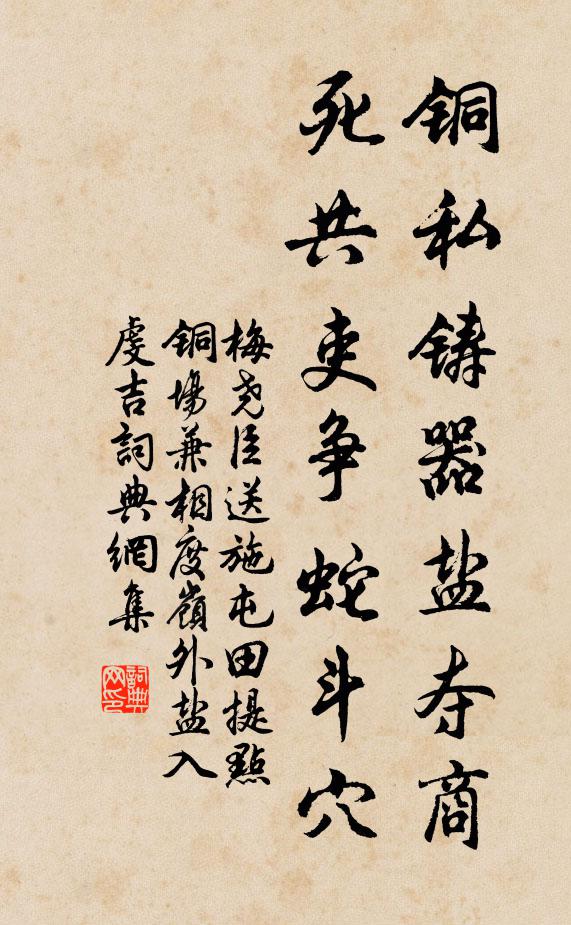 铜私铸器盐夺商
死共吏争蛇斗穴
梅尧臣送施屯田提點
铜場兼相度嶺外盐入
虔吉詞典網集
詞典网印